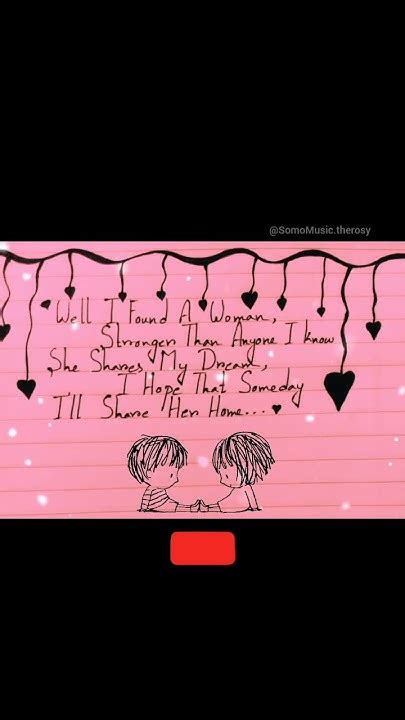 @SomoMusic.therosy
Well I Found A Woman,
Stronger Than Anyone I know
She Shares My Dream,
I Hope That Someday
I'll Share Her Home...